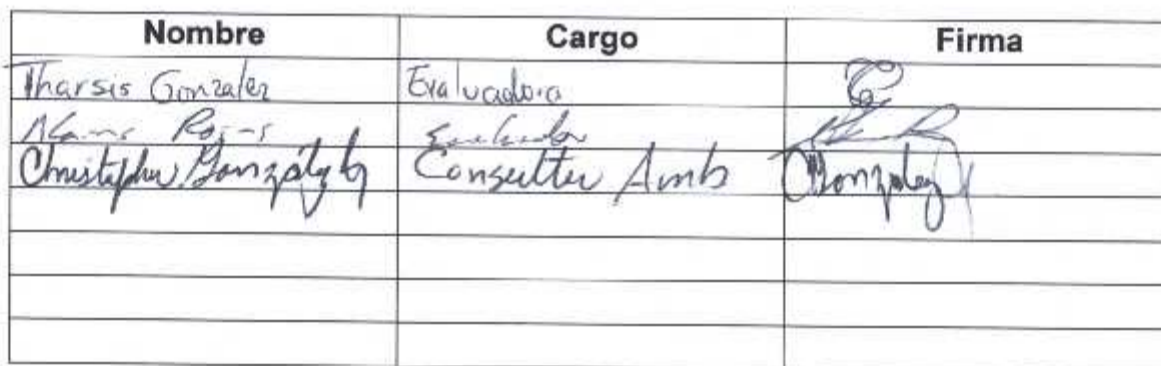 Nombre Cargo Firma
Tharsis Gonzalez Evaluadora
Rojas Evaluador
Christopher González Consultor Amb González